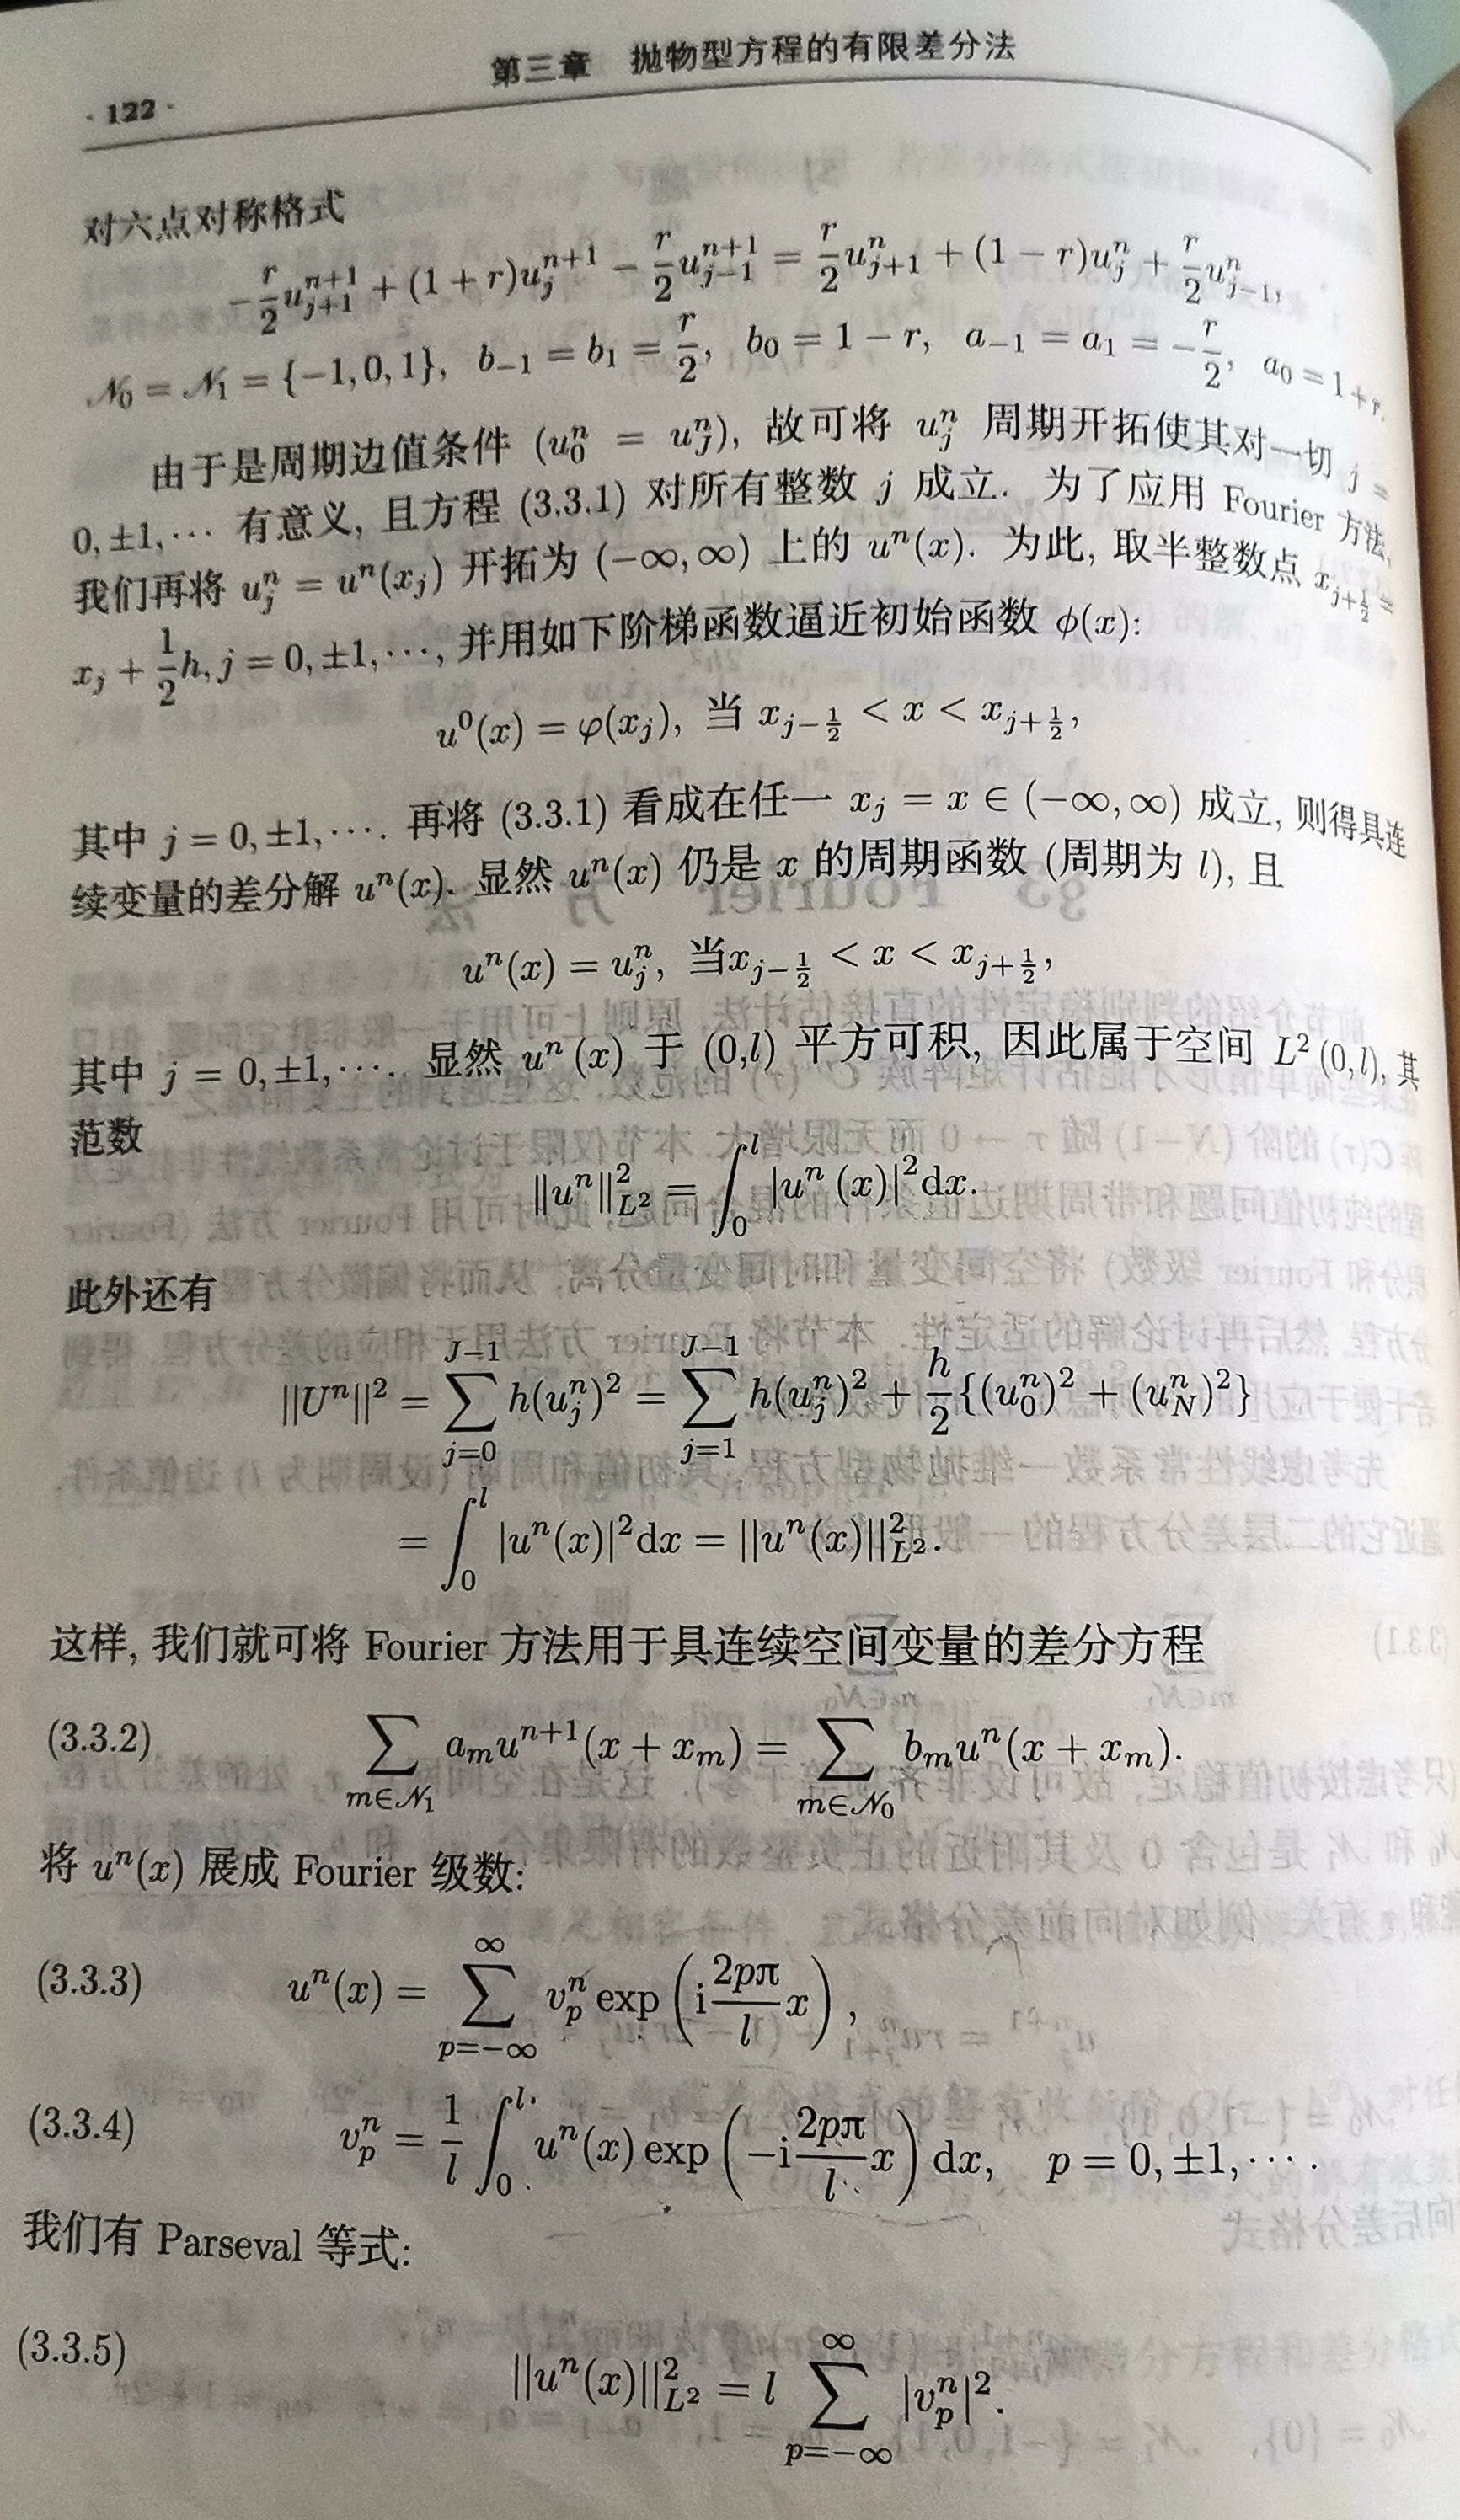 · 122 ·
第三章 抛物型方程的有限差分法
对六点对称格式
$-\frac{r}{2}u_{j+1}^{n+1} + (1+r)u_j^{n+1} - \frac{r}{2}u_{j-1}^{n+1} = \frac{r}{2}u_{j+1}^n + (1-r)u_j^n + \frac{r}{2}u_{j-1}^n,$
$\mathcal{N}_0 = \mathcal{N}_1 = \{-1, 0, 1\}, \quad b_{-1} = b_1 = \frac{r}{2}, \quad b_0 = 1 - r, \quad a_{-1} = a_1 = -\frac{r}{2}, \quad a_0 = 1 + r.$
由于是周期边值条件 $(u_0^n = u_J^n)$, 故可将 $u_j^n$ 周期开拓使其对一切 $j =$
$0, \pm 1, \cdots$ 有意义, 且方程 (3.3.1) 对所有整数 $j$ 成立. 为了应用 Fourier 方法,
我们再将 $u_j^n = u^n(x_j)$ 开拓为 $(-\infty, \infty)$ 上的 $u^n(x)$. 为此, 取半整数点 $x_{j+\frac{1}{2}} =$
$x_j + \frac{1}{2}h, j = 0, \pm 1, \cdots$, 并用如下阶梯函数逼近初始函数 $\phi(x)$:
$u^0(x) = \varphi(x_j),$ 当 $x_{j-\frac{1}{2}} < x < x_{j+\frac{1}{2}},$
其中 $j = 0, \pm 1, \cdots$. 再将 (3.3.1) 看成在任一 $x_j = x \in (-\infty, \infty)$ 成立, 则得具连
续变量的差分解 $u^n(x)$. 显然 $u^n(x)$ 仍是 $x$ 的周期函数 (周期为 $l$), 且
$u^n(x) = u_j^n,$ 当$x_{j-\frac{1}{2}} < x < x_{j+\frac{1}{2}},$
其中 $j = 0, \pm 1, \cdots$. 显然 $u^n(x)$ 于 $(0, l)$ 平方可积, 因此属于空间 $L^2(0, l)$, 其
范数
$\|u^n\|_{L^2}^2 = \int_0^l |u^n(x)|^2 \mathrm{d}x.$
此外还有
$\|U^n\|^2 = \sum_{j=0}^{J-1} h(u_j^n)^2 = \sum_{j=1}^{J-1} h(u_j^n)^2 + \frac{h}{2}\{(u_0^n)^2 + (u_N^n)^2\}$
$= \int_0^l |u^n(x)|^2 \mathrm{d}x = \|u^n(x)\|_{L^2}^2.$
这样, 我们就可将 Fourier 方法用于具连续空间变量的差分方程
(3.3.2) $\sum_{m \in \mathcal{N}_1} a_m u^{n+1}(x + x_m) = \sum_{m \in \mathcal{N}_0} b_m u^n(x + x_m).$
将 $u^n(x)$ 展成 Fourier 级数:
(3.3.3) $u^n(x) = \sum_{p=-\infty}^{\infty} v_p^n \exp\left(\mathrm{i}\frac{2p\pi}{l}x\right),$
(3.3.4) $v_p^n = \frac{1}{l}\int_0^l u^n(x) \exp\left(-\mathrm{i}\frac{2p\pi}{l}x\right) \mathrm{d}x, \quad p = 0, \pm 1, \cdots.$
我们有 Parseval 等式:
(3.3.5) $\|u^n(x)\|_{L^2}^2 = l \sum_{p=-\infty}^{\infty} |v_p^n|^2.$